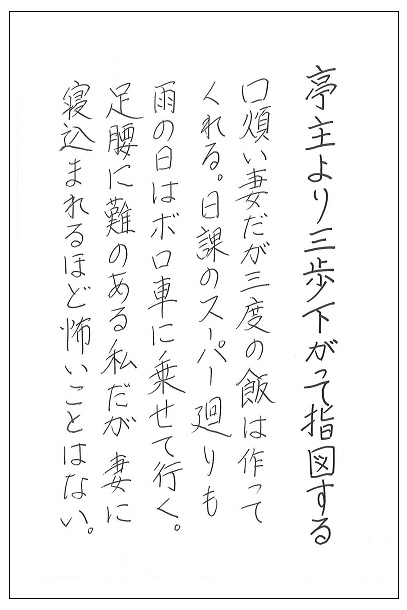 亭主より三歩下がって指図する
口煩い妻だが三度の飯は作って
くれる。日課のスーパー廻りも
雨の日はボロ車に乗せて行く。
足腰に難のある私だが妻に
寝込まれるほど怖いことはない。